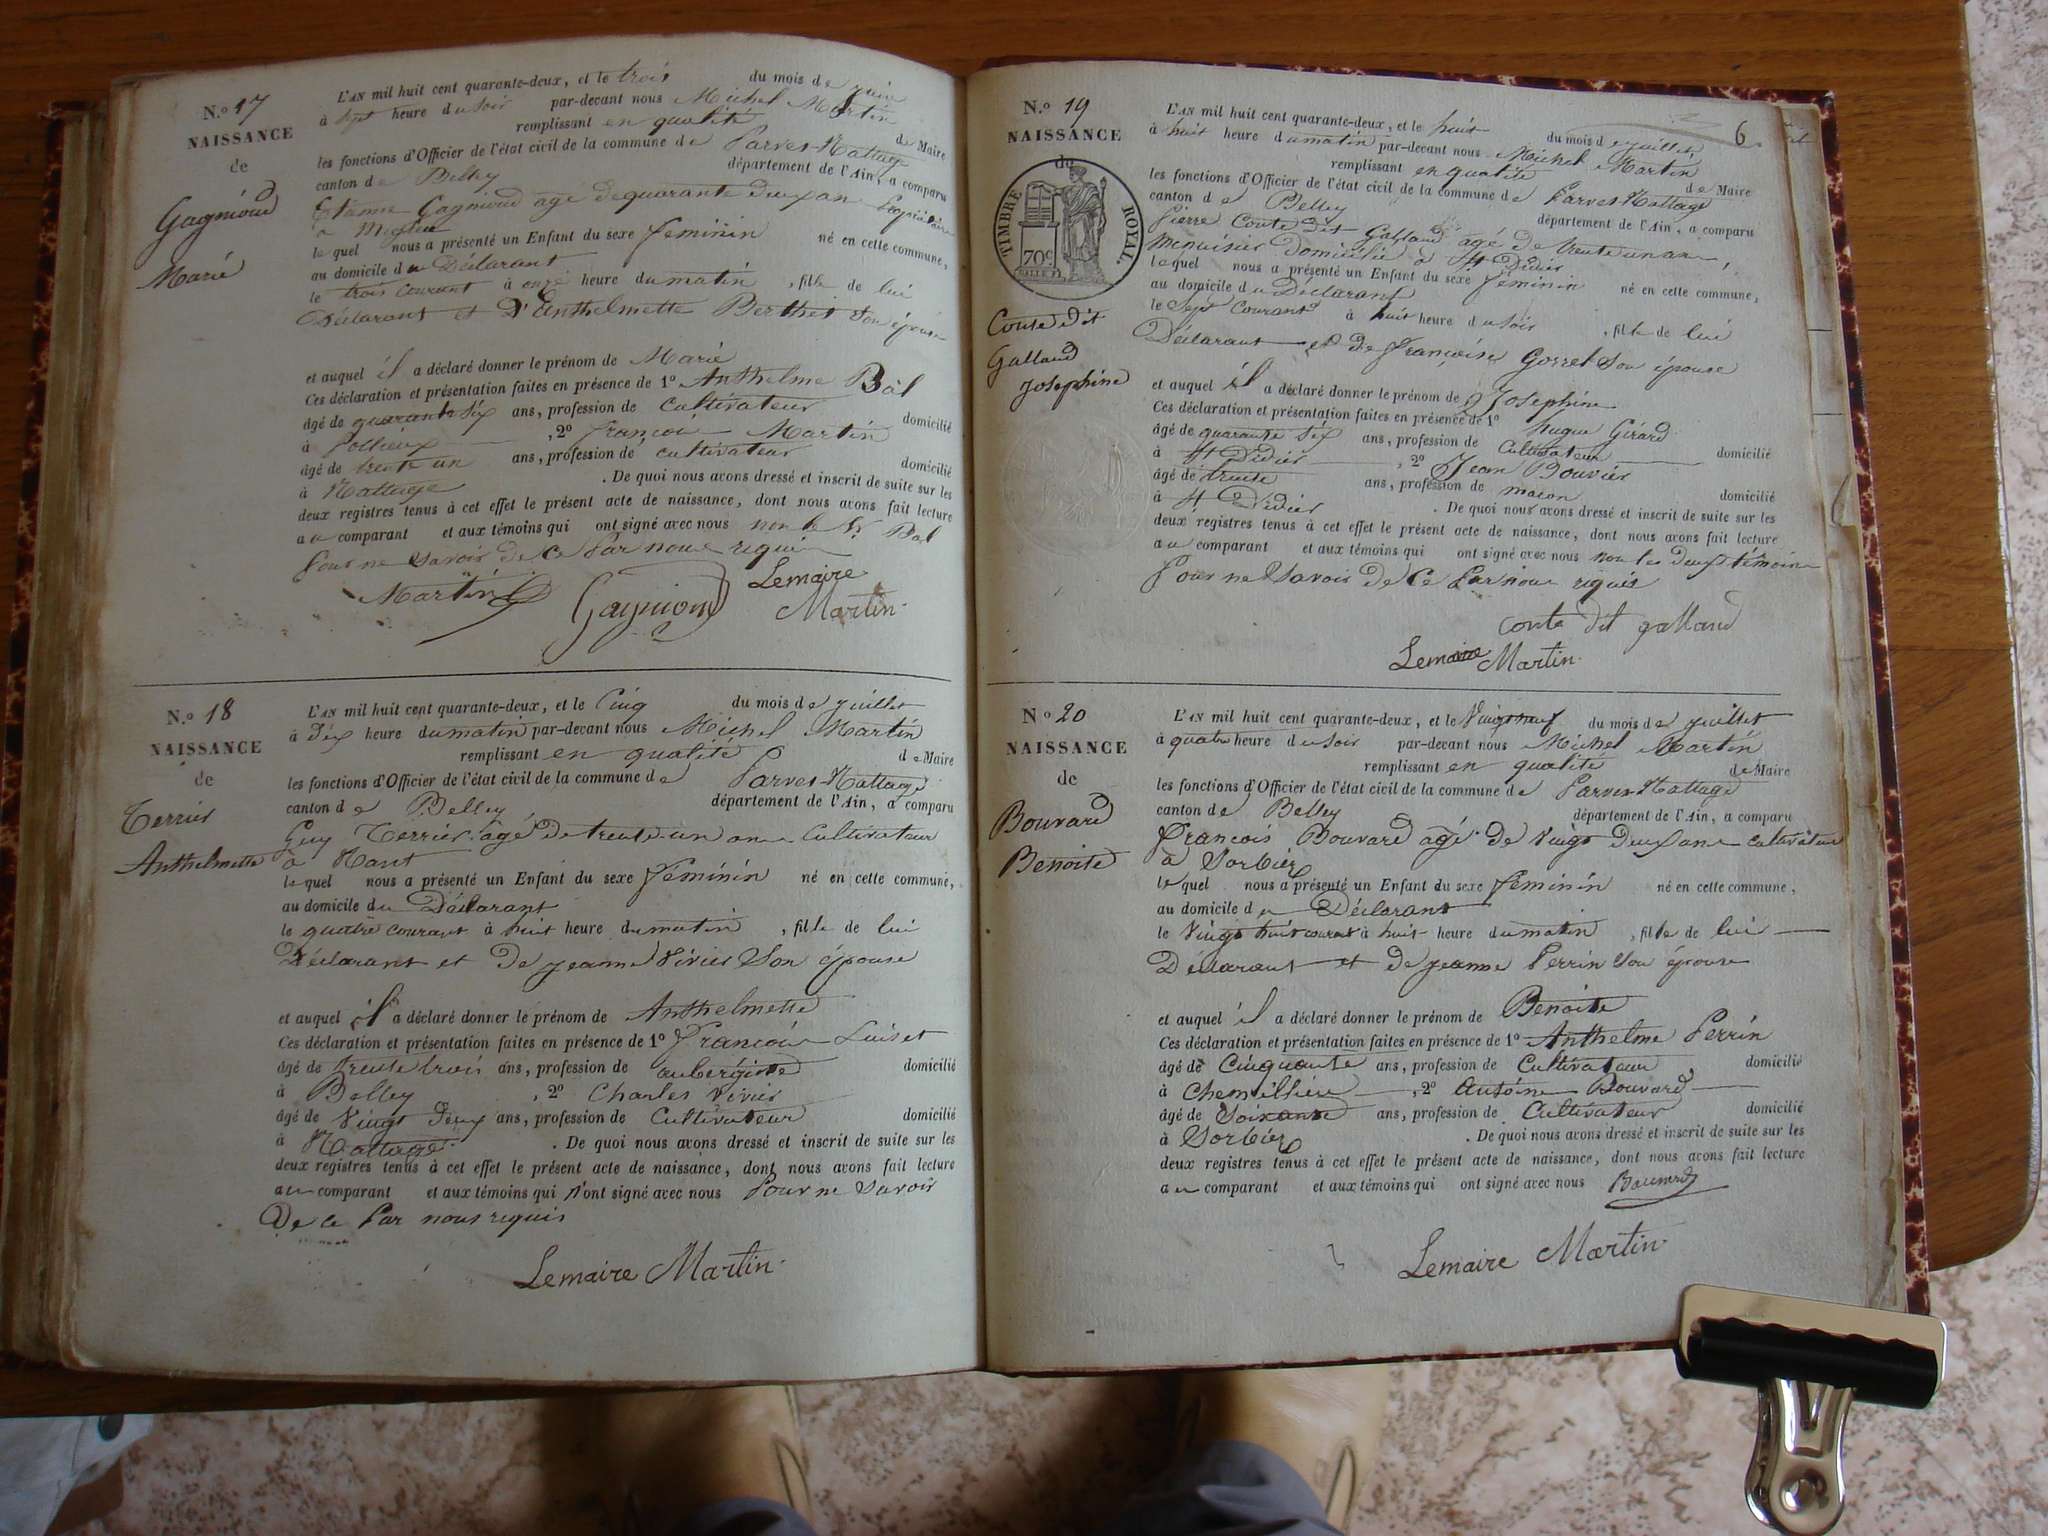 N.o 17
NAISSANCE
de
Gagnioud
Marie
L'AN mil huit cent quarante-deux, et le trois du mois de juin
à sept heure du soir par-devant nous Michel Martin
remplissant en qualité de Maire
les fonctions d'Officier de l'état civil de la commune de Parves-Nattage
canton de Belley département de l'Ain, a comparu
Etienne Gagnioud agé de quarante deux an
à
le quel nous a présenté un Enfant du sexe feminin né en cette commune,
au domicile du Déclarant
le trois courant à onze heure du matin, fille de lui
Déclarant et d'Anthelmette Berthet son épouse
et auquel il a déclaré donner le prénom de Marie
Ces déclaration et présentation faites en présence de 1o Anthelme Bal
âgé de quarante six ans, profession de cultivateur domicilié
à Pollieux, 2o François Martin
âgé de trente un ans, profession de cultivateur domicilié
à Nattage. De quoi nous avons dressé et inscrit de suite sur les
deux registres tenus à cet effet le présent acte de naissance, dont nous avons fait lecture
au comparant et aux témoins qui ont signé avec nous non le Sr. Bal
pour ne savoir de ce par nous requis
Martin Gagnioud Lemaire
Martin
N.o 18
NAISSANCE
de
Terrier
Anthelmette
L'AN mil huit cent quarante-deux, et le Cinq du mois de juillet
à dix heure du matin par-devant nous Michel Martin
remplissant en qualité de Maire
les fonctions d'Officier de l'état civil de la commune de Parves-Nattage
canton de Belley département de l'Ain, a comparu
Guy Terrier agé de trente un ans Cultivateur
à Nant
le quel nous a présenté un Enfant du sexe féminin né en cette commune,
au domicile du Déclarant
le quatre courant à huit heure du matin, fille de lui
Déclarant et de jeanne Vivier Son épouse
et auquel il a déclaré donner le prénom de Anthelmette
Ces déclaration et présentation faites en présence de 1o François Luiset
âgé de trente trois ans, profession de aubergiste domicilié
à Belley, 2o Charles Vivier
âgé de Vingt deux ans, profession de Cultivateur domicilié
à Nattage. De quoi nous avons dressé et inscrit de suite sur les
deux registres tenus à cet effet le présent acte de naissance, dont nous avons fait lecture
au comparant et aux témoins qui n'ont signé avec nous pour ne savoir
De ce par nous requis
Lemaire Martin
6
N.o 19
NAISSANCE
de
TIMBRE ROYAL
70c
Conte dit
Galland
Josephine
L'AN mil huit cent quarante-deux, et le huit du mois de juillet
à huit heure du matin par-devant nous Michel Martin
remplissant en qualité de Maire
les fonctions d'Officier de l'état civil de la commune de Parves-Nattage
canton de Belley département de l'Ain, a comparu
Pierre Conte dit Galland agé de trente un ans,
menuisier Domicilié à St Didier
le quel nous a présenté un Enfant du sexe féminin né en cette commune,
au domicile du Déclarant
le Sept Courant à huit heure du soir, fille de lui
Déclarant et de françoise Gorrel son épouse
et auquel il a déclaré donner le prénom de Josephine
Ces déclaration et présentation faites en présence de 1o hugue Girard
âgé de quarante six ans, profession de Cultivateur domicilié
à St Didier, 2o Jean Bouvier
âgé de trente ans, profession de macon domicilié
à St Didier. De quoi nous avons dressé et inscrit de suite sur les
deux registres tenus à cet effet le présent acte de naissance, dont nous avons fait lecture
au comparant et aux témoins qui ont signé avec nous non les deux témoins
pour ne savoir de ce par nous requis
conte dit galland
Lemaire Martin
No 20
NAISSANCE
de
Bouvard
Benoite
L'AN mil huit cent quarante-deux, et le Vingt neuf du mois de juillet
à quatre heure du soir par-devant nous Michel Martin
remplissant en qualité de Maire
les fonctions d'Officier de l'état civil de la commune de Parves-Nattage
canton de Belley département de l'Ain, a comparu
François Bouvard agé de Vingt Deux ans cultivateur
à Sorbier
le quel nous a présenté un Enfant du sexe feminin né en cette commune,
au domicile du Déclarant
le Vingt huit courant à huit heure du matin, fille de lui
Déclarant et de jeanne Perrin son épouse
et auquel il a déclaré donner le prénom de Benoite
Ces déclaration et présentation faites en présence de 1o Anthelme Perrin
âgé de Cinquante ans, profession de Cultivateur domicilié
à Chemillieu, 2o Antoine Bouvard
âgé de Soixante ans, profession de Cultivateur domicilié
à Sorbier. De quoi nous avons dressé et inscrit de suite sur les
deux registres tenus à cet effet le présent acte de naissance, dont nous avons fait lecture
au comparant et aux témoins qui ont signé avec nous Bouvard
Lemaire Martin